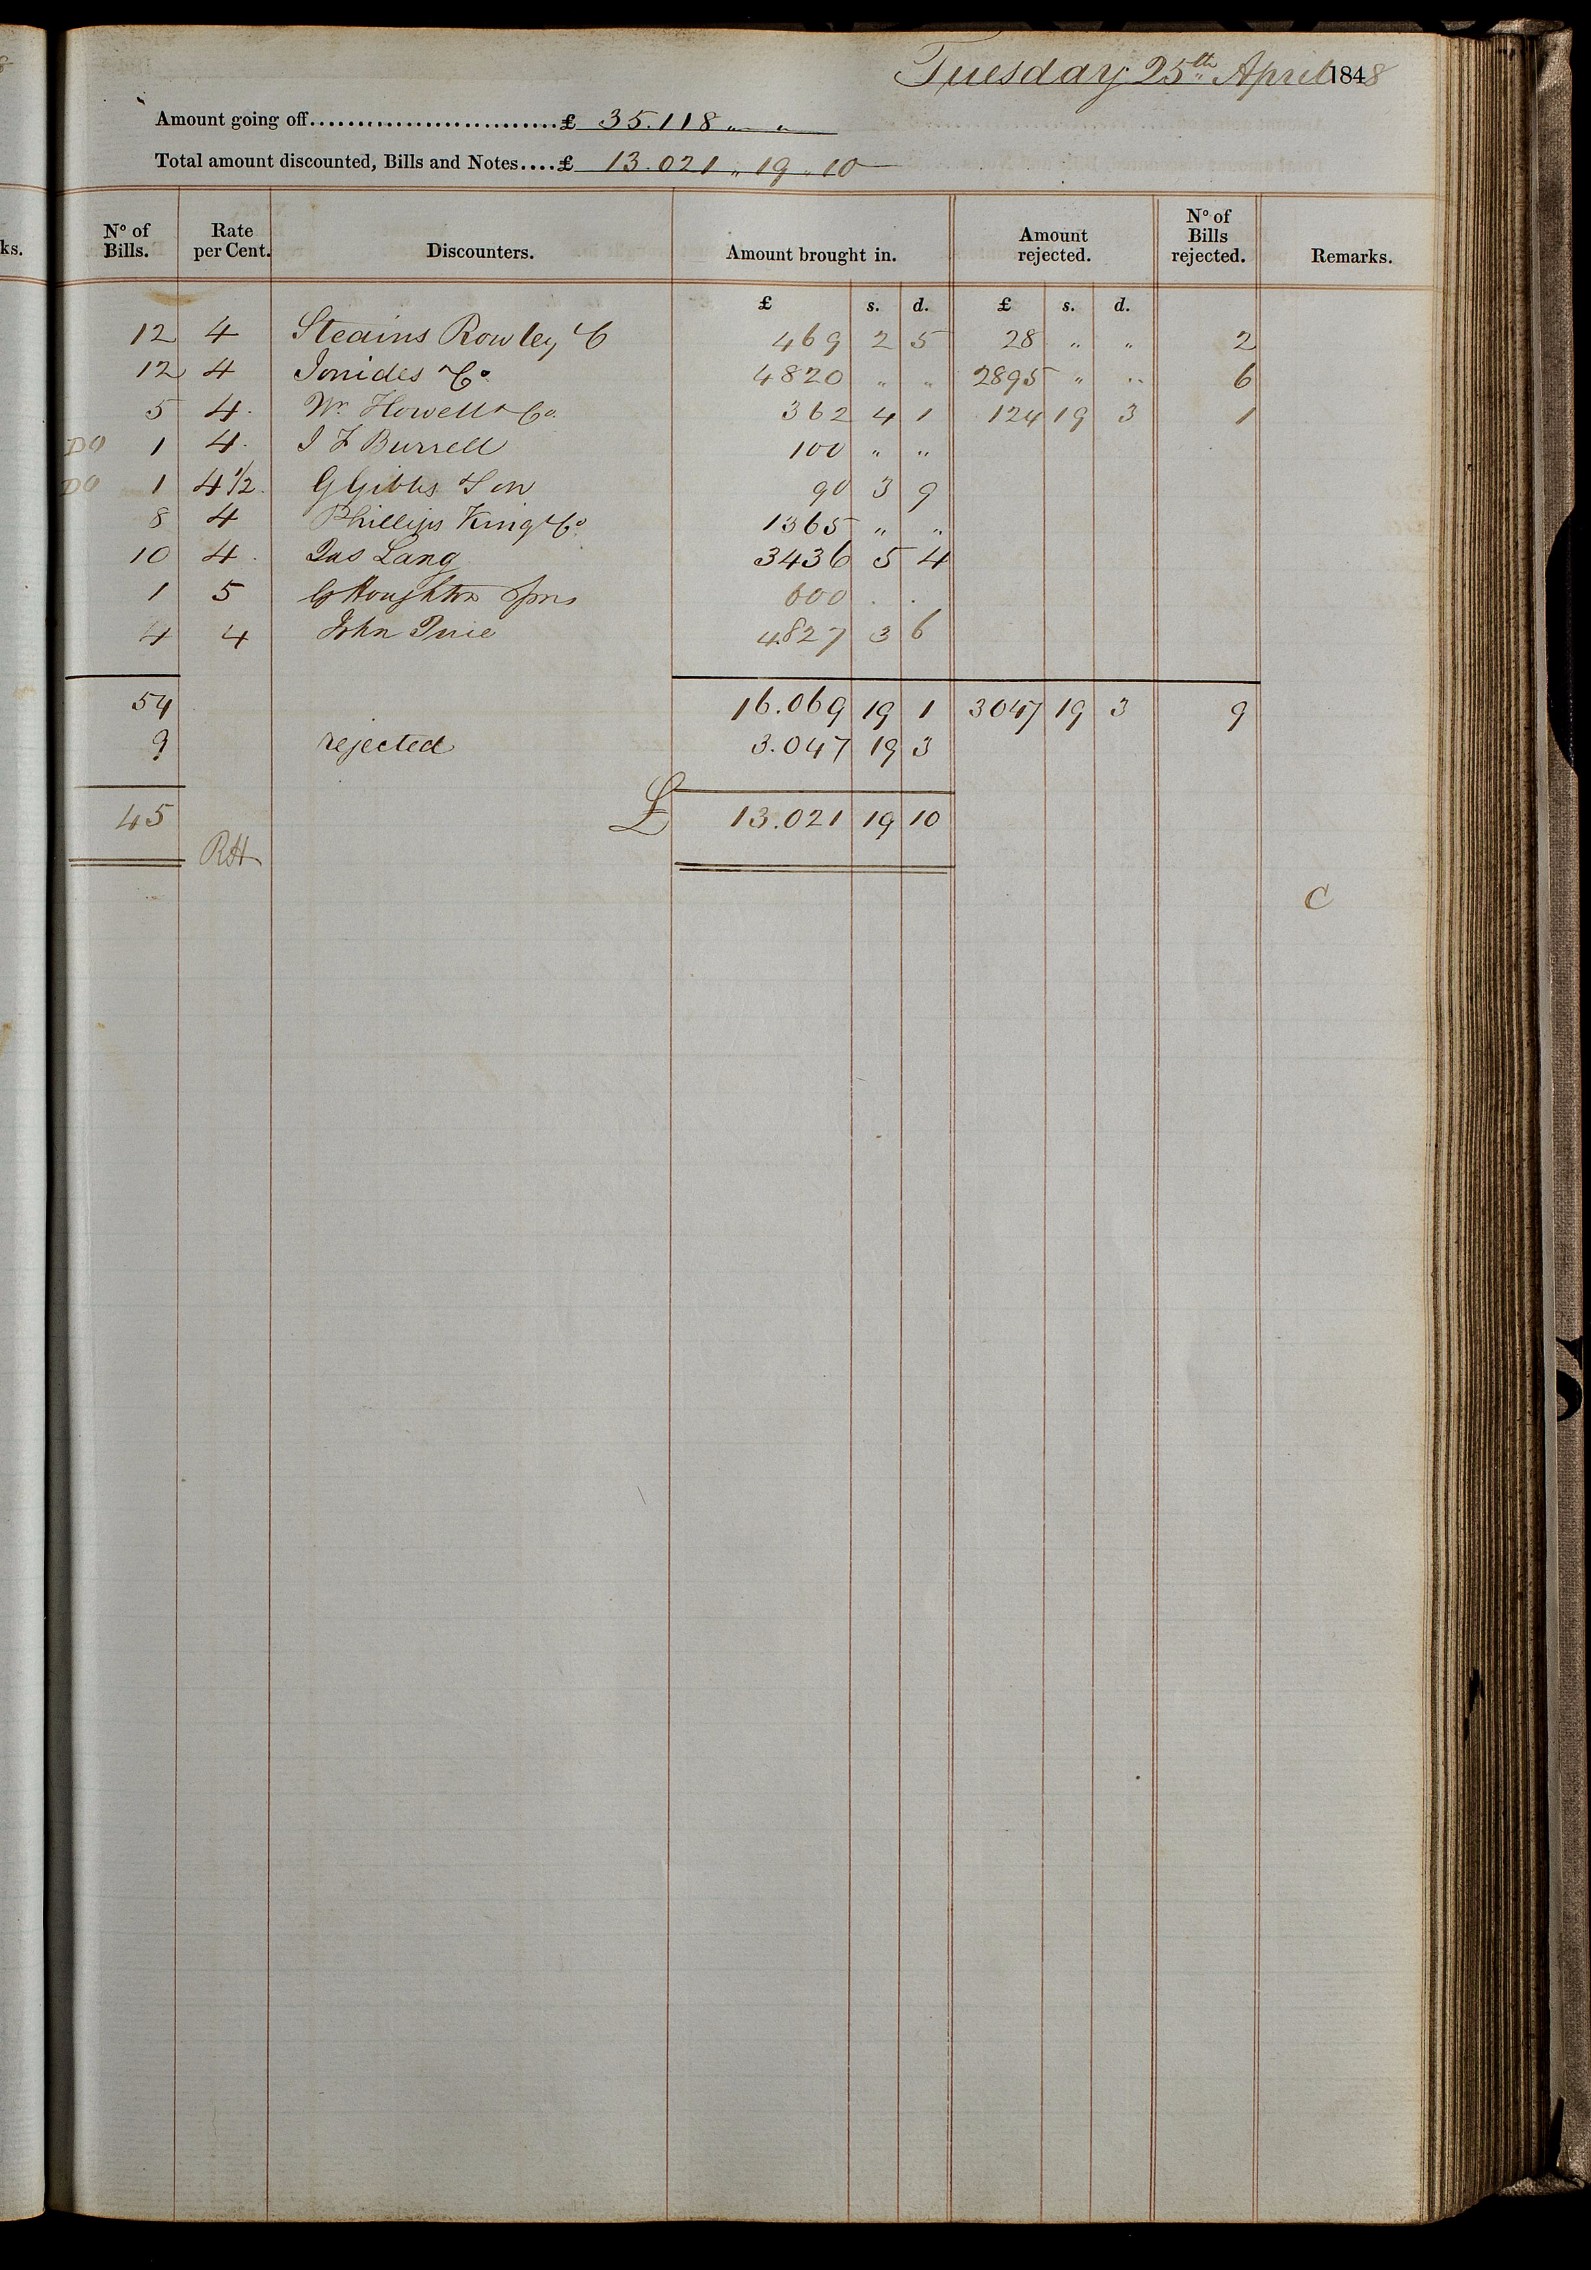 Tuesday 25th April 1848
Amount going off..........................£ 35.118 " "
Total amount discounted, Bills and Notes....£ 13.021 " 19 " 10
ks. No of Bills. Rate per Cent. Discounters. Amount brought in. Amount rejected. No of Bills rejected. Remarks.
£ s. d. £ s. d.
12 4 Steains Rowley & C 469 2 5 28 " " 2
12 4 Ionides & Co 4820 " " 2895 " " 6
5 4 Wm Howell & Co 362 4 1 124 19 3 1
DO 1 4 I F Burrell 100 " "
DO 1 4 1/2 G Gibbs & Son 90 3 9
8 4 Phillips King & Co 1365 " "
10 4 Jas Lang 3436 5 4
1 5 G Houghton & Sons 600 . .
4 4 John 4827 3 6
54 16.069 19 1 3047 19 3 9
9 rejected 3.047 19 3
45 £ 13.021 19 10
RH
C